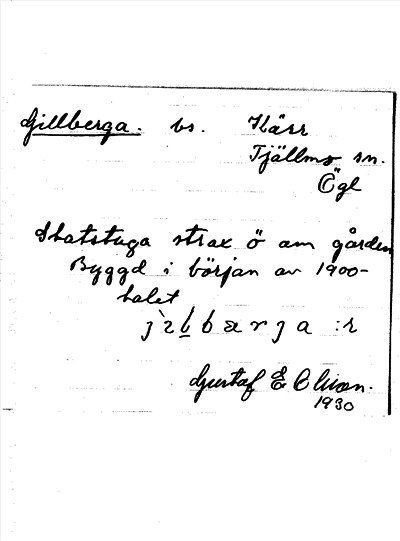 Gillberga. bs. Kärr
Tjällmo sn.
Ögl
Statstuga strax ö om gården
Byggd i början av 1900-
talet
Gustaf E Olsson.
1930